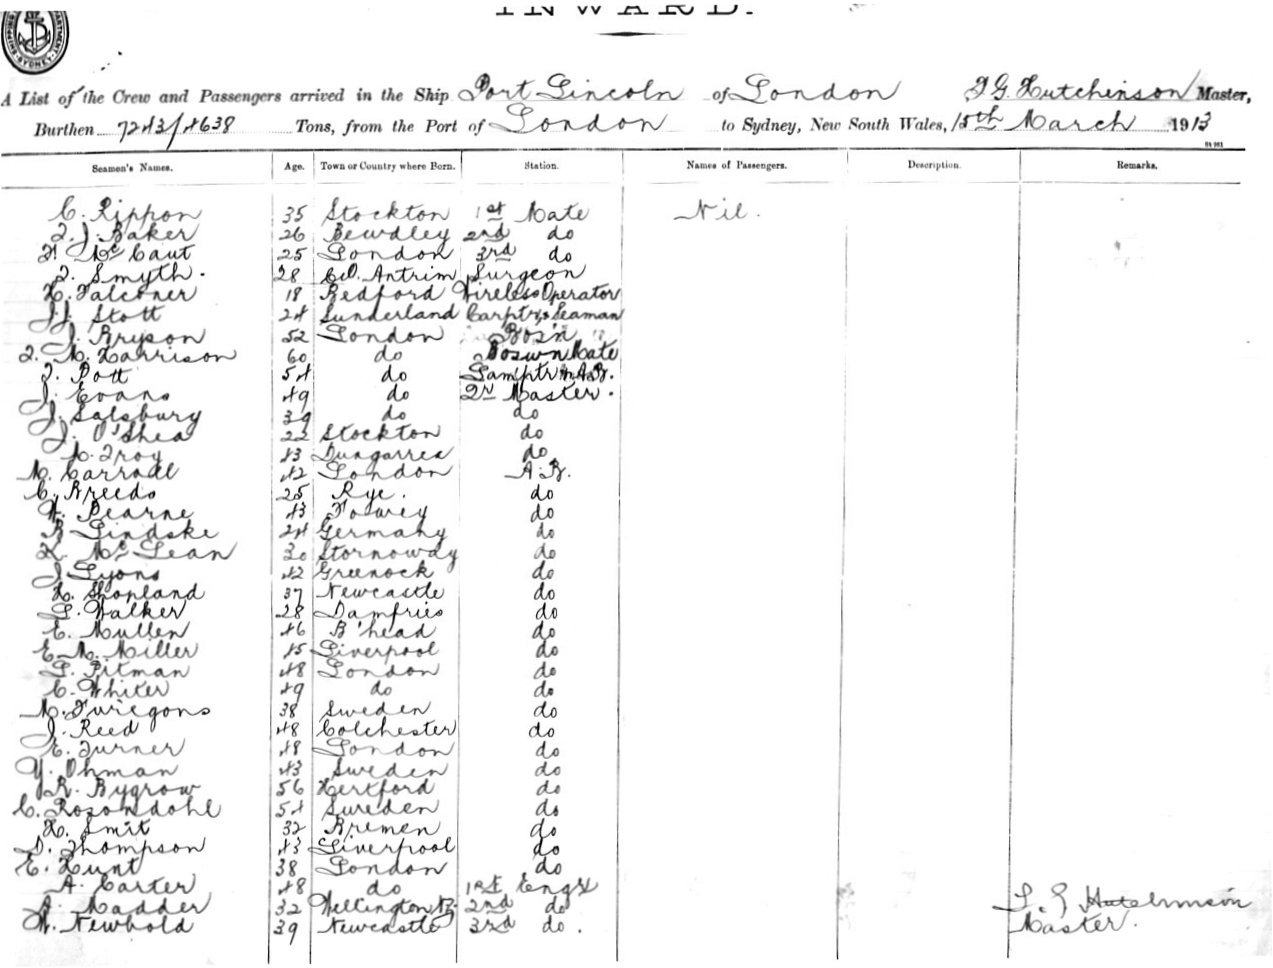 INWARD.
SHIPPING DEPARTMENT SYDNEY
A List of the Crew and Passengers arrived in the Ship Port Lincoln of London T G. Hutchinson Master,
Burthen 7243/4638 Tons, from the Port of London to Sydney, New South Wales, 15th March 1913
Seamen's Names. Age. Town or Country where Born. Station. Names of Passengers. Description. Remarks.
C. Rippon 35 Stockton 1st Mate Nil.
T. J. Baker 26 Bewdley 2nd do
25 London 3rd do
T. Smyth. 28 Co. Antrim Surgeon
H. Falconer 18 Bedford Wireless Operator
J. J. Stott 24 Sunderland Carptr & Seaman
J. Bryson 52 London Bos'n
T. M. Harrison 60 do Boswn Mate
T. Pott 54 do Lamptr A.B.
J. Evans 49 do 2r Master.
J. Salsbury 39 do do
J. O'Shea 22 Stockton do
M. Troy 43 do
M. Carroll 42 London A.B.
C. Breeds 25 Rye. do
W. Pearne 43 Fowey do
R Lindske 24 Germany do
K. McLean 30 Stornoway do
J Lyons 42 Greenock do
H. Shopland 37 Newcastle do
L. Walker 28 Damfries do
E. Mullen 46 B'head do
E. M. Miller 45 Liverpool do
L. Pitman 48 London do
C. Whiter 49 do do
38 Sweden do
J. Reed 48 Colchester do
E. Turner 48 London do
Y. Ohman 43 Sweden do
R. Bygrow 56 Hertford do
C. Rosomdohl 54 Sweden do
H. Smit 32 Bremen do
D. Thompson 43 Liverpool do
E. Hunt 38 London do
A. Carter 48 do 1st Engr
A. Madder 32 Wellington N.Z. 2nd do
W. Newbold 39 Newcastle 3rd do.
T. G Hutchinson
Master.